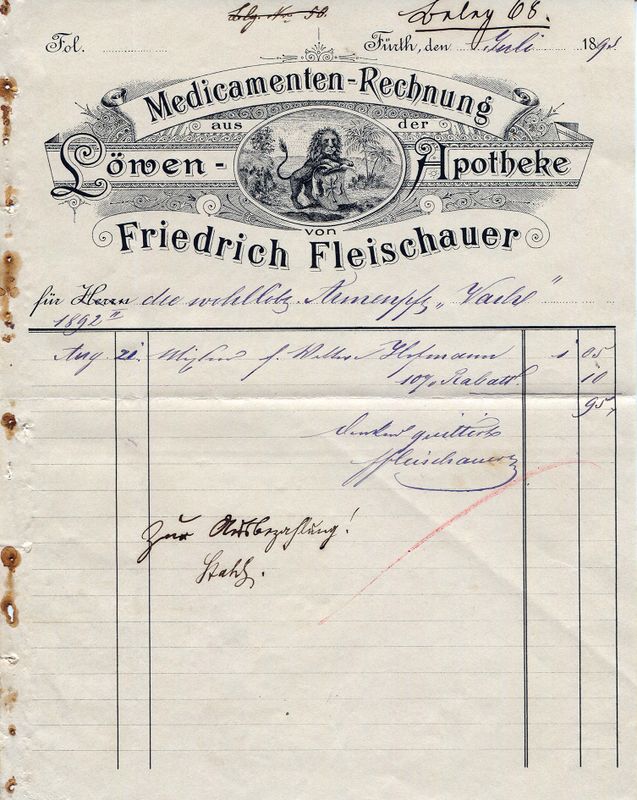 Beleg 68.
Fol. Fürth, den Juli 189
Medicamenten-Rechnung
aus der
Löwen-Apotheke
von
Friedrich Fleischauer
für Herrn die wohllöbl. Armenpfl. „Vach"
1892
Aug. 21. f. Hofmann 1 05
10% Rabatt 10
95
dankend quittirt
Fleischauer
Zur Ausbezahlung!